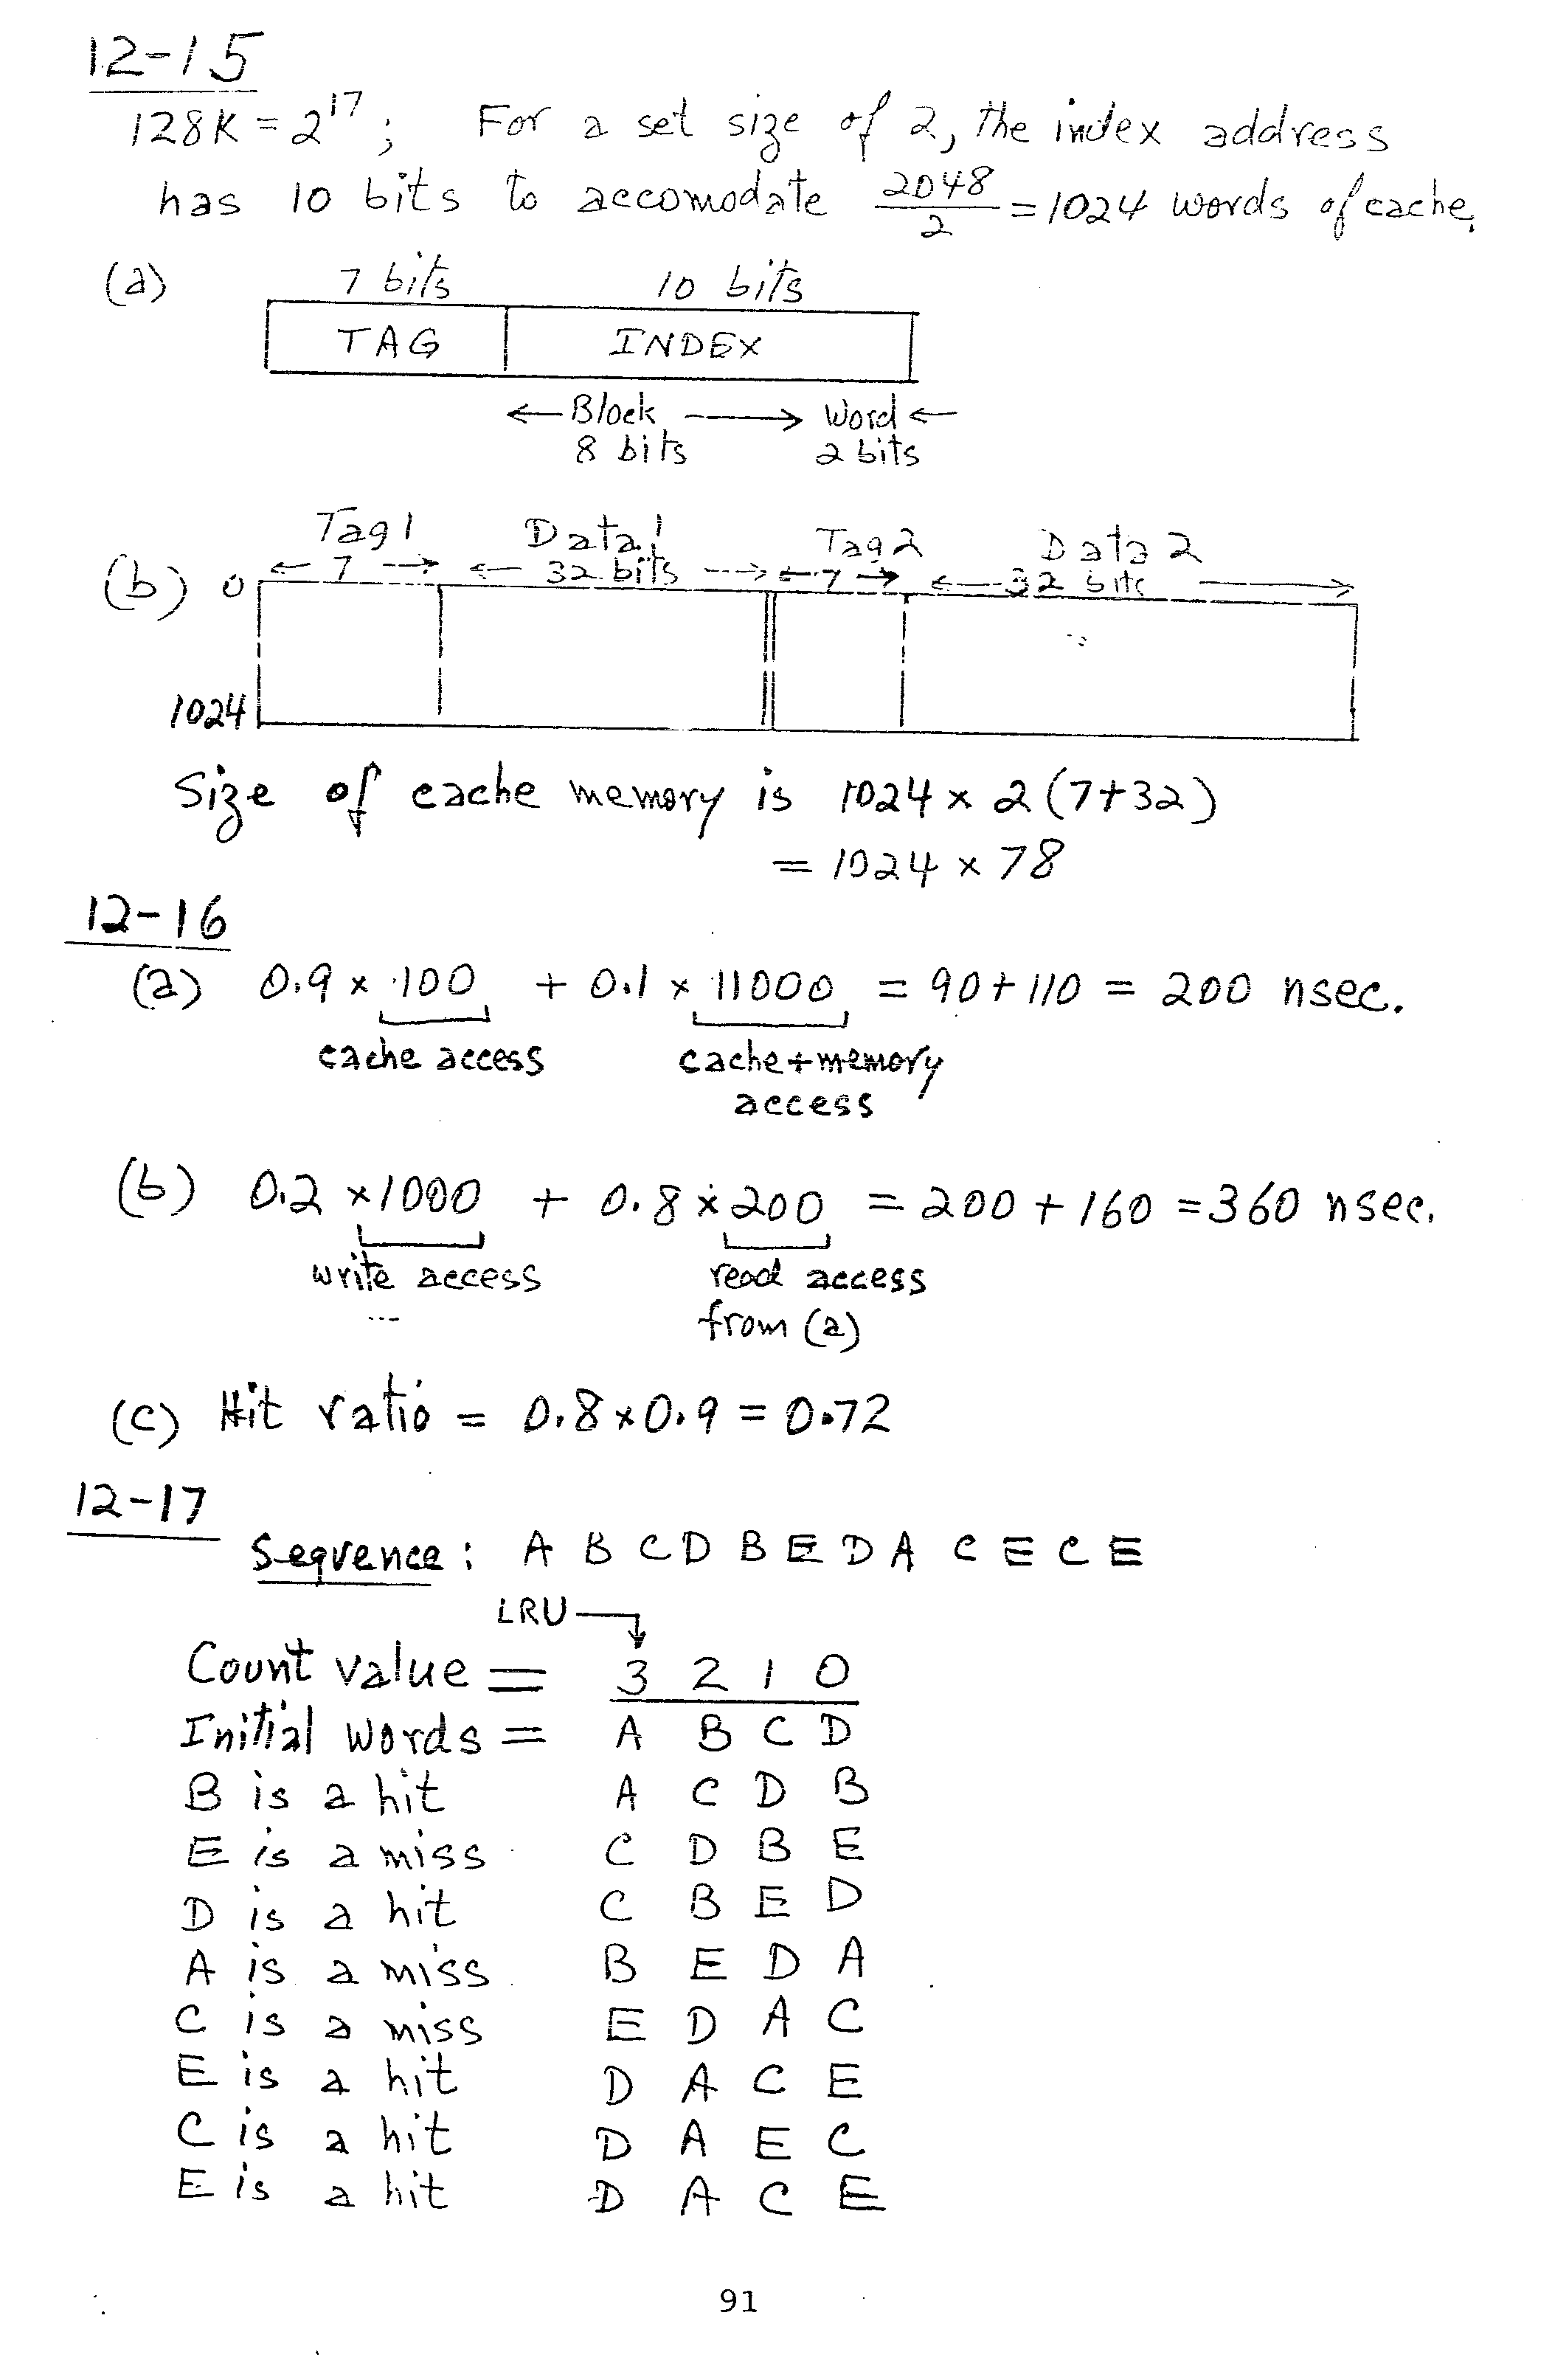 12-15
128K = 2^17 ; For a set size of 2, the index address
has 10 bits to accomodate 2048/2 = 1024 words of cache.
(a) 7 bits 10 bits
TAG INDEX
← Block → Word ←
8 bits 2 bits
Tag 1 Data 1 Tag 2 Data 2
(b) 0 ← 7 → ← 32 bits → ← 7 → ← 32 bits →
1024
Size of cache memory is 1024 × 2 (7+32)
= 1024 × 78
12-16
(a) 0.9 × 100 + 0.1 × 11000 = 90 + 110 = 200 nsec.
cache access cache + memory
access
(b) 0.2 × 1000 + 0.8 × 200 = 200 + 160 = 360 nsec.
write access read access
from (a)
(c) Hit ratio = 0.8 × 0.9 = 0.72
12-17
Sequence : A B C D B E D A C E C E
LRU
Count value = 3 2 1 0
Initial words = A B C D
B is a hit A C D B
E is a miss C D B E
D is a hit C B E D
A is a miss B E D A
C is a miss E D A C
E is a hit D A C E
C is a hit D A E C
E is a hit D A C E
91